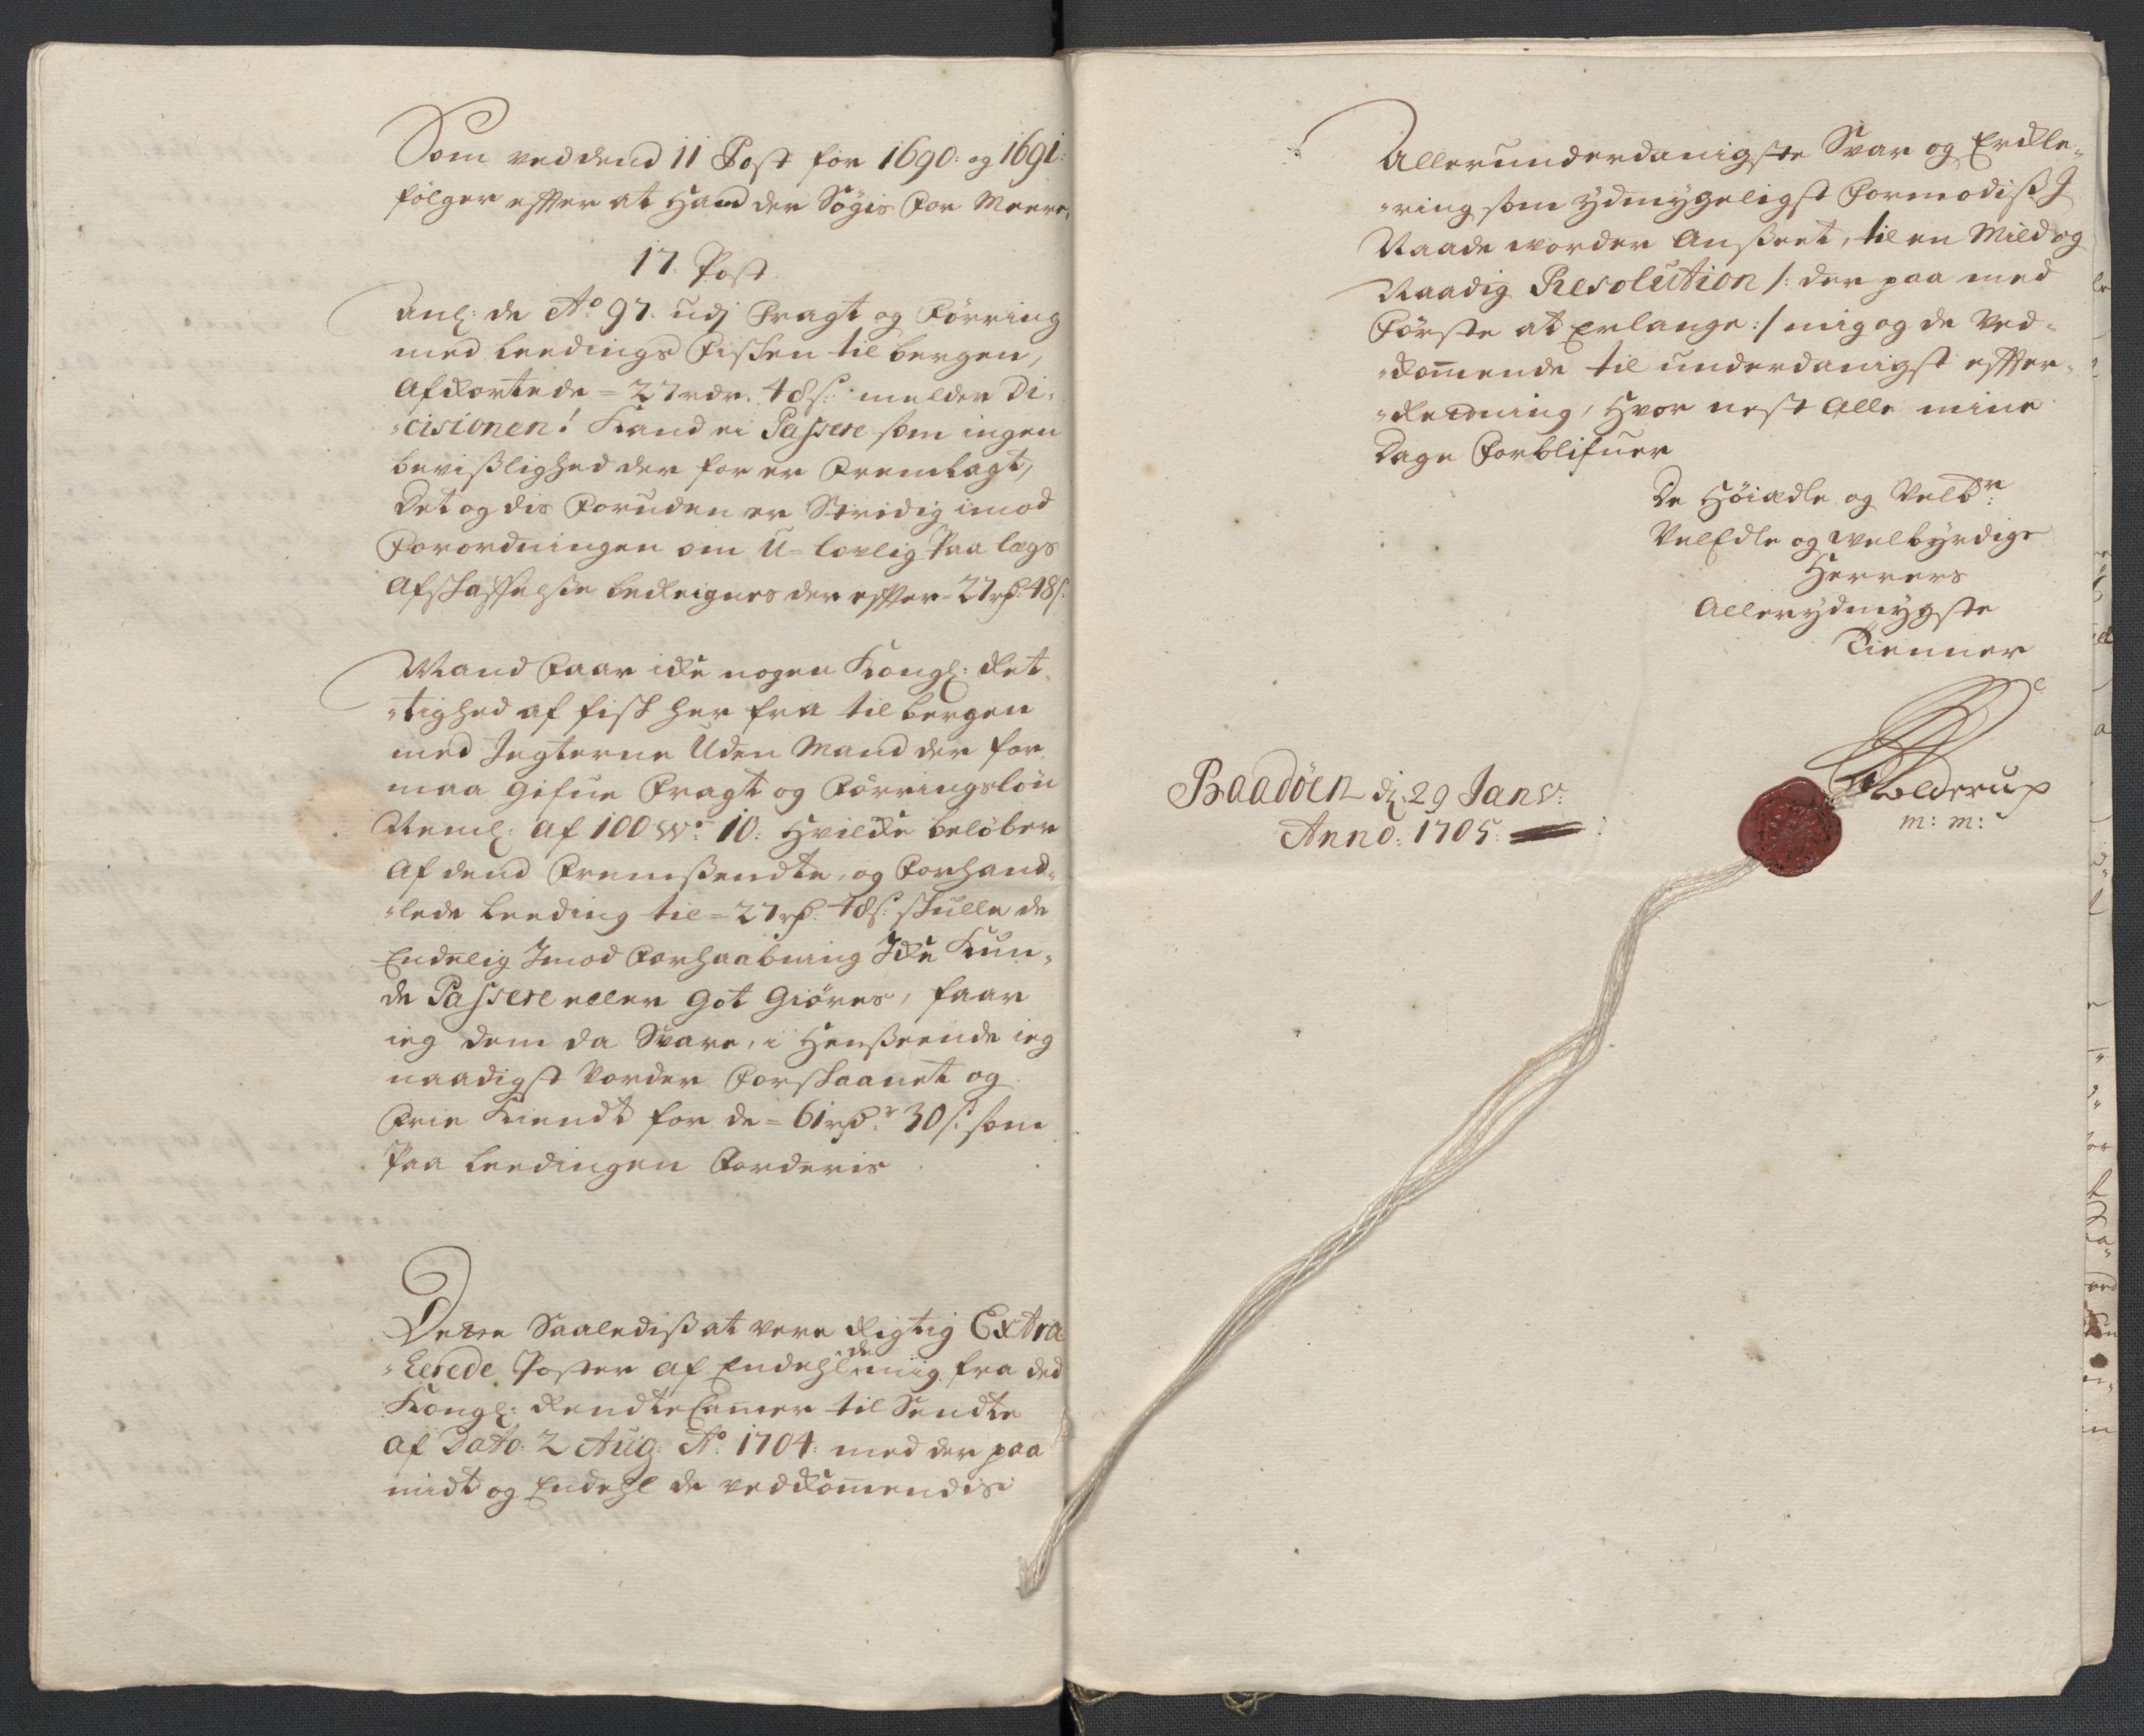 Som ved dend 11 Post for 1690: og 1691:
følger effter at Hand der Søgis for Meere,
17. Post
Anl: de Ao 97. udj Fragt og Førring
med Leedings Fisken til bergen,
Afkortede = 27 rdr. 48 s: melder Di-
-cisionen! Kand ei Passere som ingen
bevißlighed der for er Fremlagt,
Det og dis Foruden er Stridig imod
Forordningen om U=lovlig Paa lægs
Afskaffelße beReignes der effter = 27 rd: 48 s:
Mand Faar icke nogen Kongl: Ret-
-tighed af fisk her fra til bergen
med Jegterne Uden Mand der for
maa Gifue Fragt og Førringsløn
Neml: Af 100 W: 10: Hvilcke beløber
Af dend Fremßendte, og Forhand-
-lede Leeding til = 27 rd: 48 s: skulle de
Endelig Imod Forhaabning Icke Kun-
de Passere eller Got Giøres, faar
ieg dem da Svare, i Henßeende ieg
naadigst vorder Forskaanet og
Frie Kiendt for de = 61 rdr 30 s: som
Paa Leedingen Forderis
Desse Saaledißat vere Rigtig Extra-
-herede Poster af Endehl de miig fra ded
Kongl: RendteCammer til Sendte
af Dato: 2 Aug: Ao 1704: med der paa
midt og Endehl de vedkommendis
Allerunderdanigste Svar og Erckle-
-ring som ydmygeligst Formodiß I
Naade vorder Anßeet, til en Mild og
Naadig Resolution /: der paa med
Første at Erlange :/ mig og de Ved-
-kommende til underdanigst effter-
-Retning, Hvor nest Alle mine
Dage Forblifuer
De Høiædle og Velbr:
VelEdle og welbyrdige
Herrers
Allerydmygste
Tienner
Baadöen dj 29 Janv:
Anno: 1705.
Wolderup
m: m: